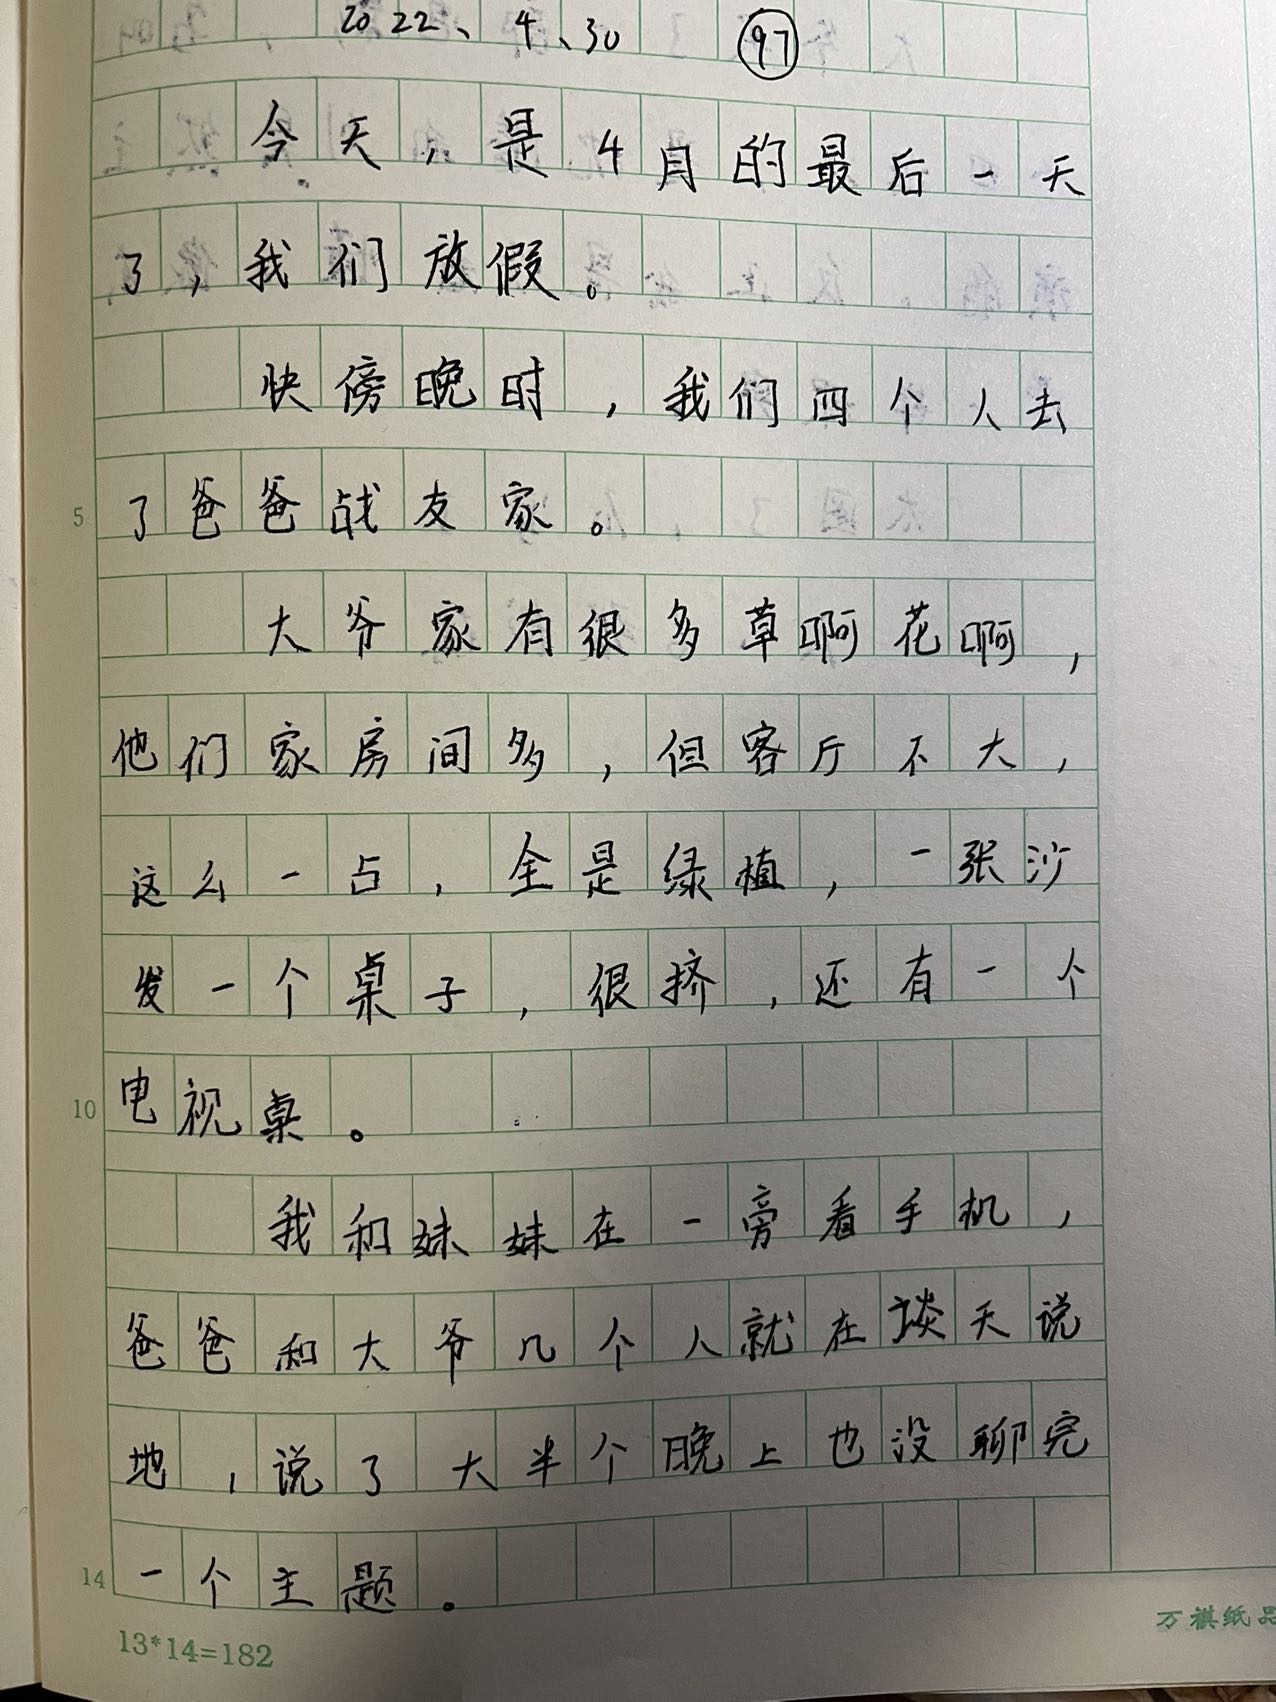 2022、4、30 97
今天，是4月的最后一天
了，我们放假。
快傍晚时，我们四个人去
5 了爸爸战友家。
大爷家有很多草啊花啊，
他们家房间多，但客厅不大，
这么一占，全是绿植，一张沙
发一个桌子，很挤，还有一个
10 电视桌。
我和妹妹在一旁看手机，
爸爸和大爷几个人就在谈天说
地，说了大半个晚上也没聊完
14 一个主题。
13*14=182
万祺纸品